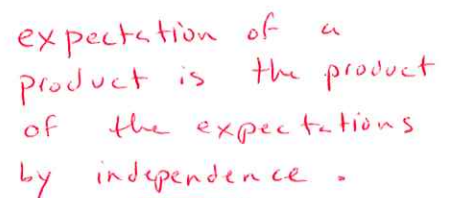 expectation of a
product is the product
of the expectations
by independence.